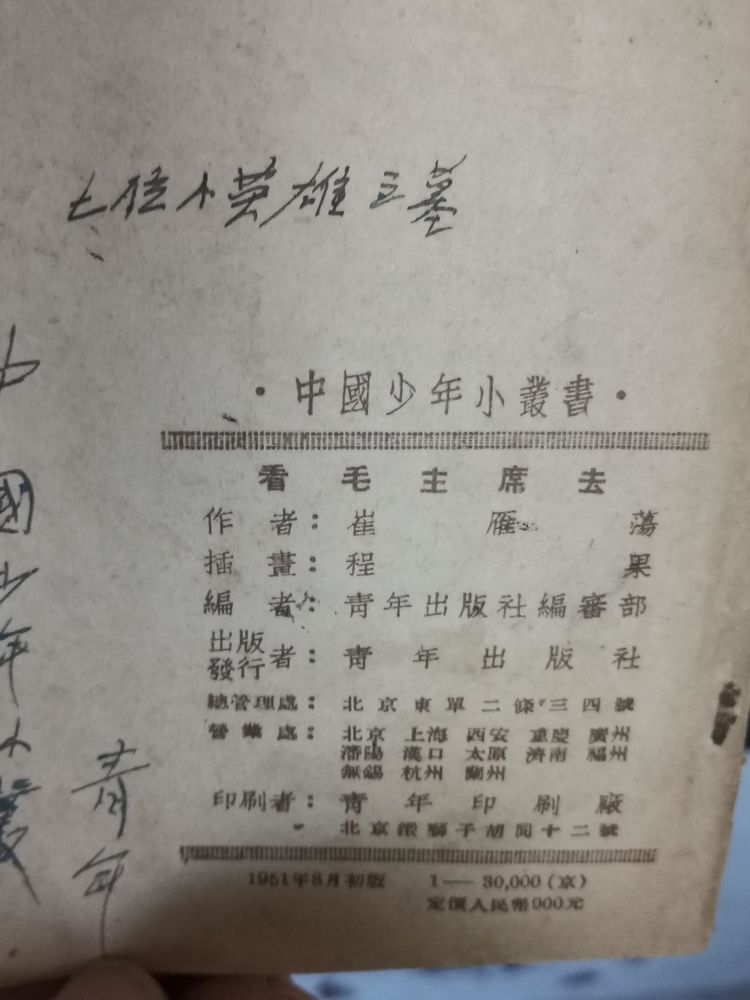 七位小英雄之墓
·中國少年小叢書·
看毛主席去
作者：崔雁蕩
插畫：程果
編者：青年出版社編審部
出版發行者：青年出版社
總管理處：北京東單二條三四號
營業處：北京 上海 西安 重慶 廣州
瀋陽 漢口 太原 濟南 福州
無錫 杭州 蘭州
印刷者：青年印刷廠
北京鐵獅子胡同十二號
1951年8月初版 1—30,000(京)
定價人民幣900元
中國少年小叢
青年